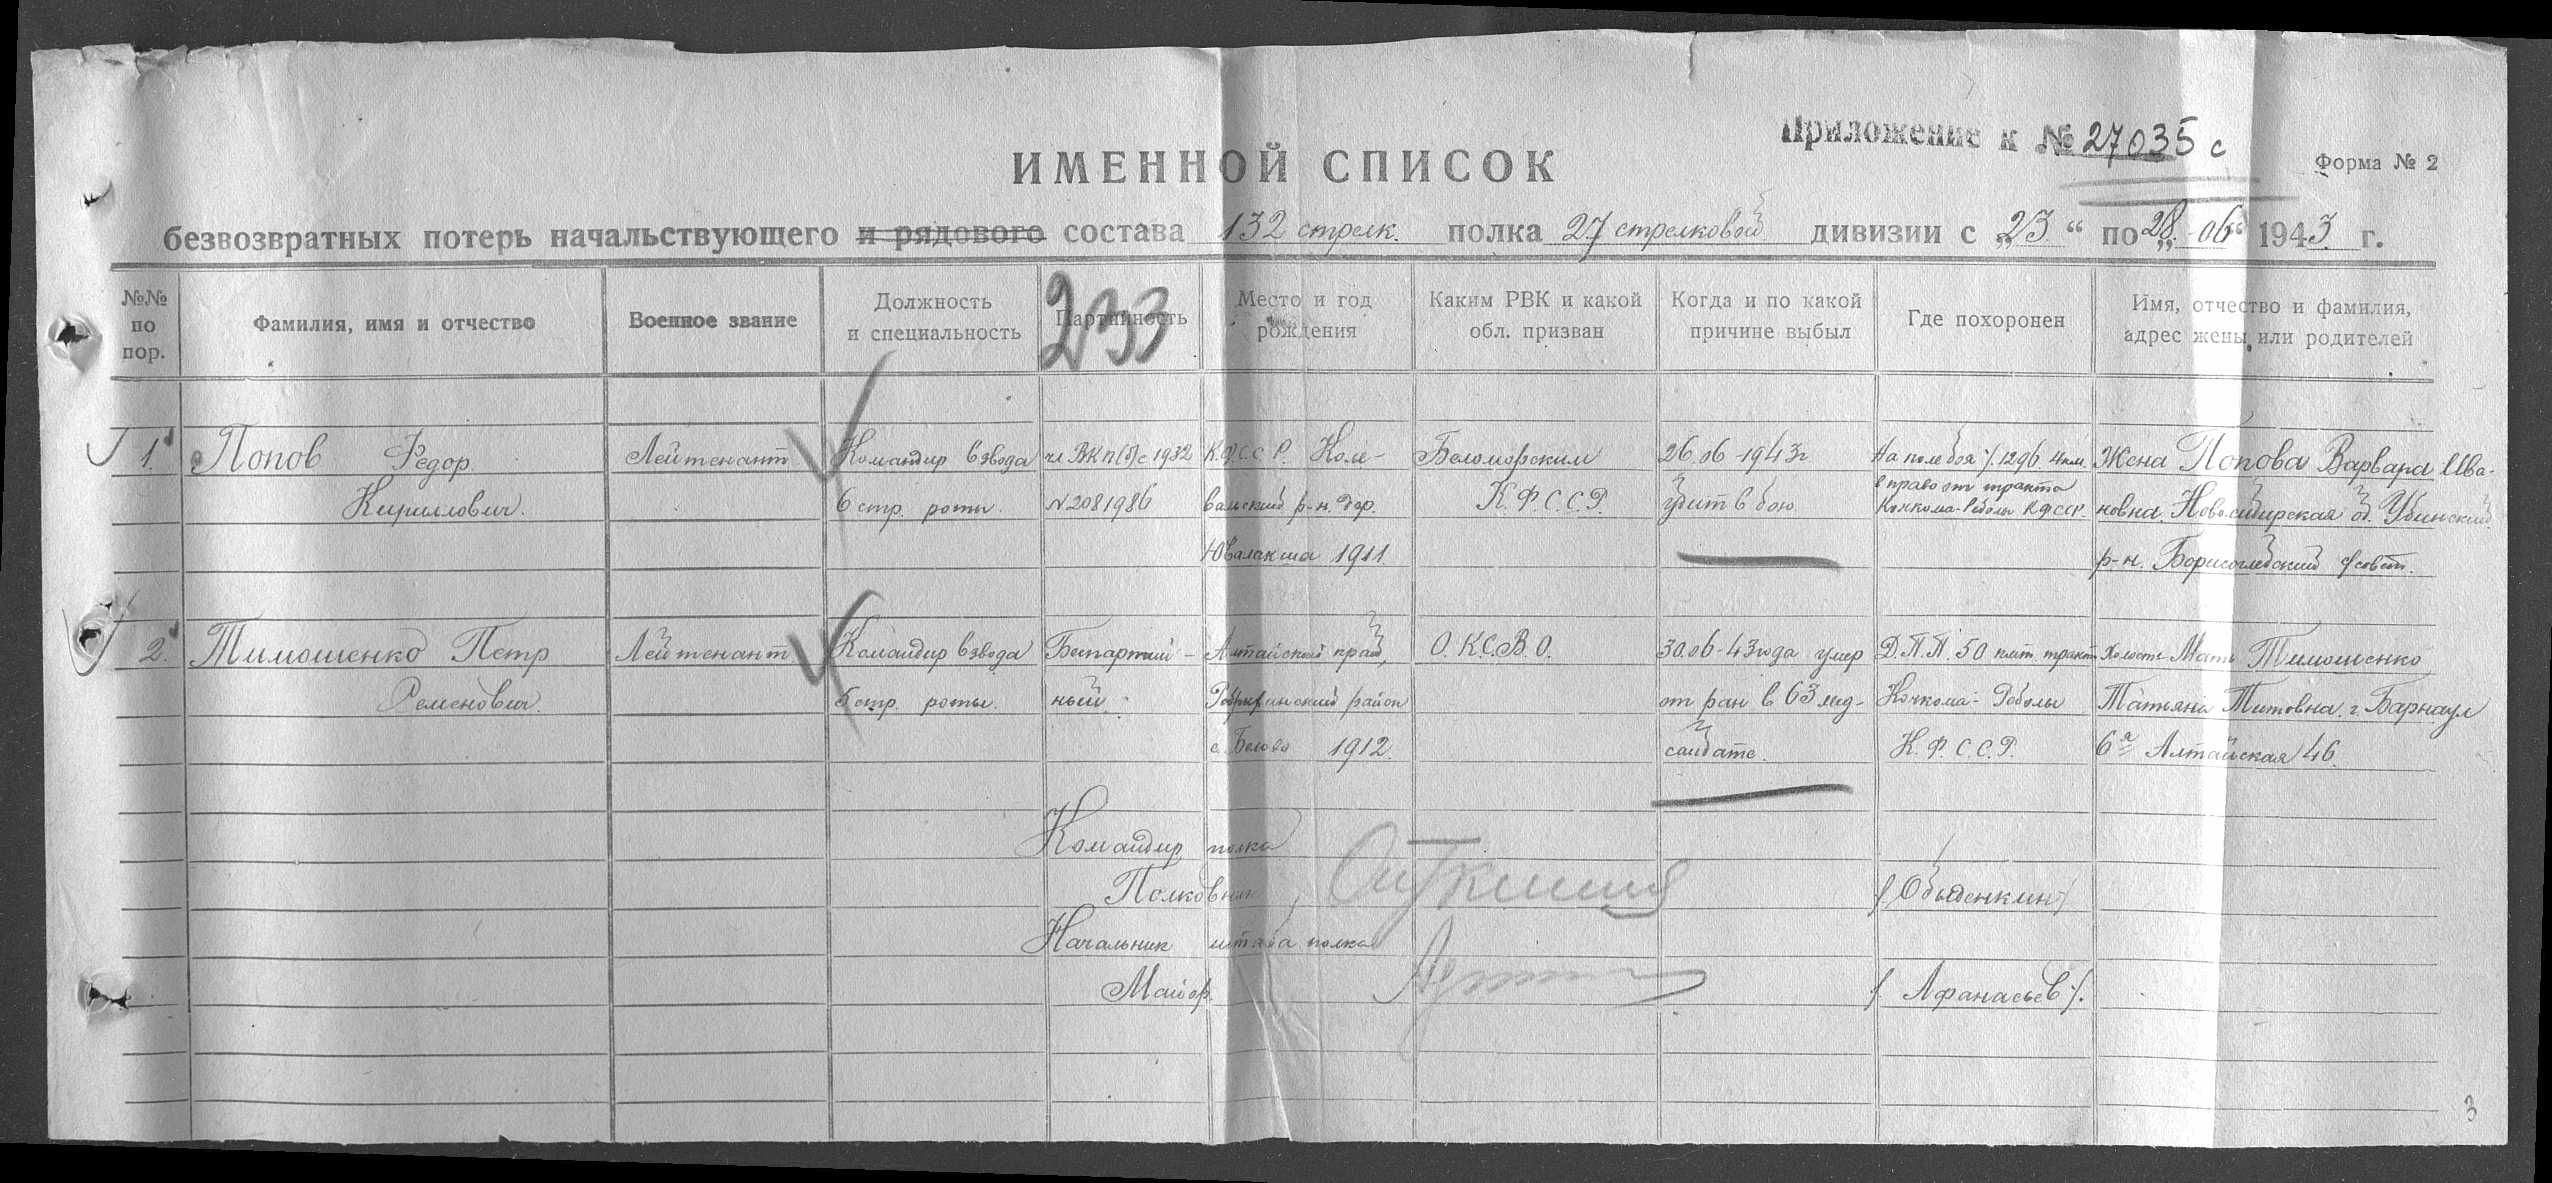 Приложение к № 27035 с
ИМЕННОЙ СПИСОК
Форма № 2
безвозвратных потерь начальствующего и рядового состава 132 стрелк. полка 27 стрелковой дивизии с „23“ по „28-06“ 1943 г.
№№ по пор.
Фамилия, имя и отчество
Военное звание
Должность и специальность
Партийность
233
Место и год рождения
Каким РВК и какой обл. призван
Когда и по какой причине выбыл
Где похоронен
Имя, отчество и фамилия, адрес жены или родителей
1. Попов Федор Лейтенант Командир взвода чл ВКП(б) с 1932 К.Ф.С.С.Р. Коле- Беломорским 26.06-1943г На поле боя 4 км. Жена Попова Варвара Ива-
Кириллович. 6 стр. роты. №2081986 вамский р-н. дер. К.Ф.С.С.Р. убит в бою вправо от тракта Кочкома-Реболы КФССР. новна. Новосибирская об. Убинский
Ювалакша 1911. р-н. Борисоглебский с/совет.
2. Тимошенко Петр Лейтенант Командир взвода Беспартий- Алтайский край, О.К.С.В.О. 30.06-43 года умер Д.П.П. 50 клм. тракт Холост Мать Тимошенко
Семенович. 5 стр. роты. ный. район от ран в 63 мед- Кочкома-Реболы Татьяна Титовна. г. Барнаул
с. Белово 1912. санбате. К.Ф.С.С.Р. 6я Алтайская 46.
Командир полка
Полковник /Обыденкин/
Начальник штаба полка
Майор. /Афанасьев/.
3